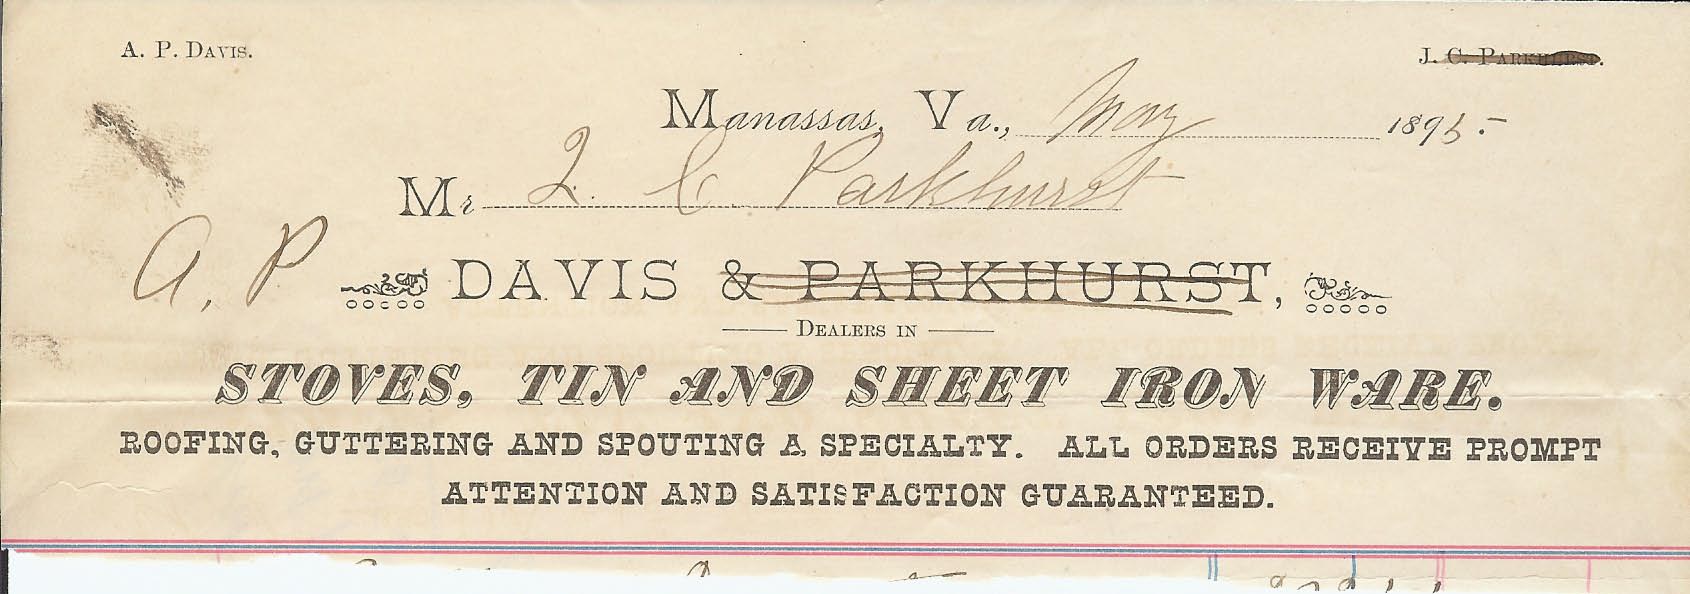 A. P. DAVIS.
J. C. PARKHURST.
Manassas, Va., May 1895.
Mr J. C. Parkhurst
A. P DAVIS & PARKHURST,
DEALERS IN
STOVES, TIN AND SHEET IRON WARE.
ROOFING, GUTTERING AND SPOUTING A SPECIALTY. ALL ORDERS RECEIVE PROMPT
ATTENTION AND SATISFACTION GUARANTEED.